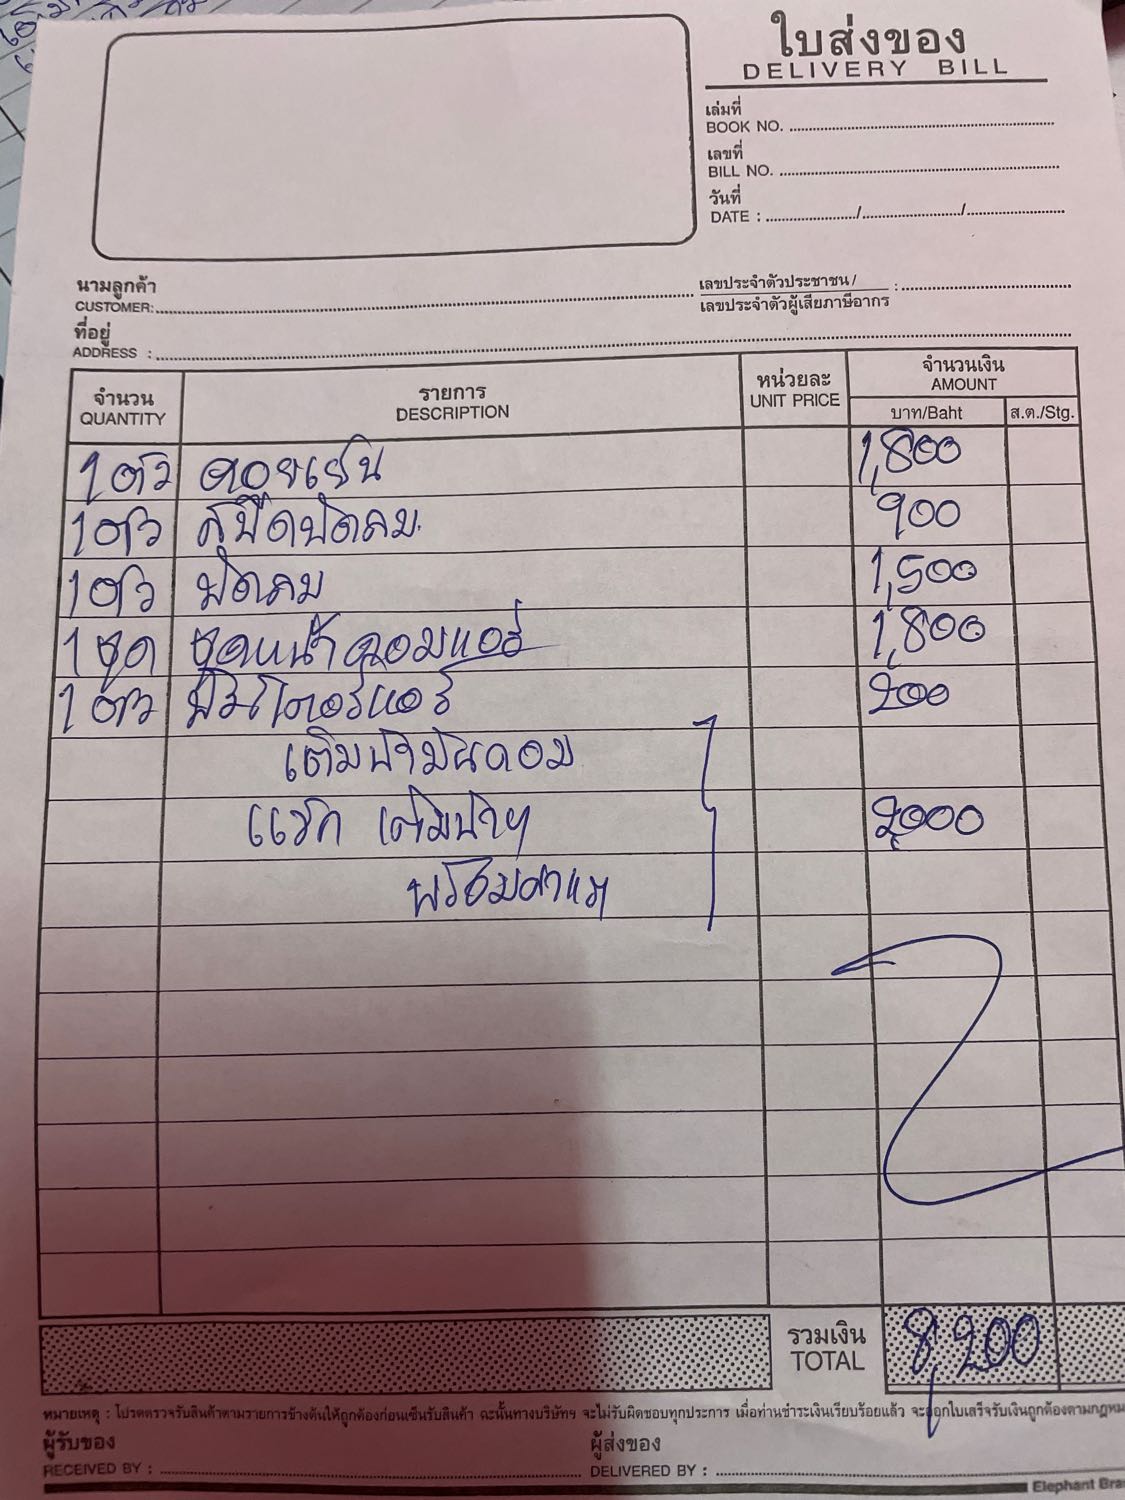 ใบส่งของ
DELIVERY BILL
เล่มที่
BOOK NO.
เลขที่
BILL NO.
วันที่
DATE : / /
นามลูกค้า
CUSTOMER:
เลขประจำตัวประชาชน/
เลขประจำตัวผู้เสียภาษีอากร :
ที่อยู่
ADDRESS :
จำนวน รายการ หน่วยละ จำนวนเงิน
QUANTITY DESCRIPTION UNIT PRICE AMOUNT
บาท/Baht ส.ต./Stg.
1 ตัว คอยเย็น 1,800
1 ตัว สปีดพัดลม 900
1 ตัว พัดลม 1,500
1 ชุด ชุดหน้าคอมแอร์ 1,800
1 ตัว ฟิลเตอร์แอร์ 200
เติมน้ำมันคอม
แว๊ก เติมน้ำยา 2,000
พร้อมค่าแรง
รวมเงิน
TOTAL 8,200
หมายเหตุ : โปรดตรวจรับสินค้าตามรายการข้างต้นให้ถูกต้องก่อนเซ็นรับสินค้า ฉะนั้นทางบริษัทฯ จะไม่รับผิดชอบทุกประการ เมื่อท่านชำระเงินเรียบร้อยแล้ว จะออกใบเสร็จรับเงินถูกต้องตามกฎหม
ผู้รับของ
RECEIVED BY :
ผู้ส่งของ
DELIVERED BY :
Elephant Bra